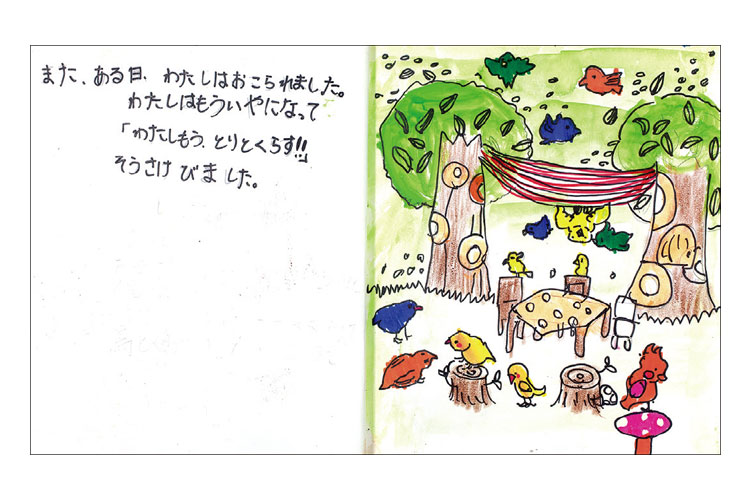 また、ある日、わたしはおこられました。
わたしはもういやになって
「わたしもう、とりとくらす!!」
そうさけびました。